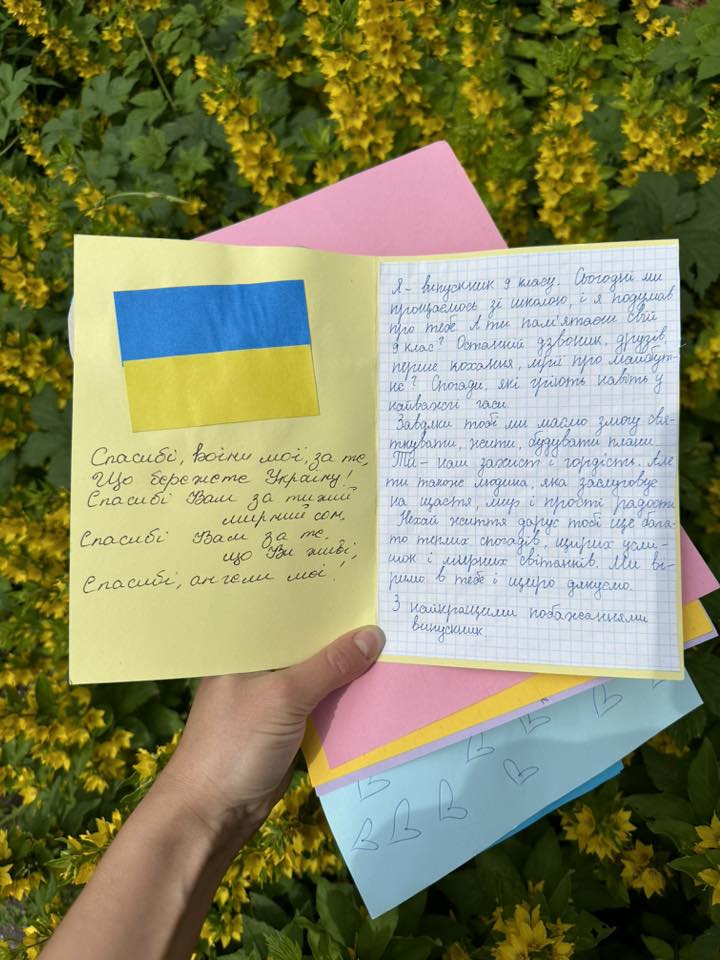 Спасибі, воїни мої, за те,
Що бережете Україну!
Спасибі Вам за тихий
мирний сон,
Спасибі Вам за те,
що Ви живі,
Спасибі, ангели мої!
Я - випускник 9 класу. Сьогодні ми
прощаємось зі школою, і я подумав
про тебе. А ти пам'ятаєш свій
9 клас? Останній дзвоник, друзів,
перше кохання, мрії про майбут-
нє? Спогади, які гріють навіть у
найважчі часи.
Завдяки тобі ми маємо змогу свя-
ткувати, жити, будувати плани.
Ти - наш захист і гордість. Але
ти також людина, яка заслуговує
на щастя, мир і прості радості.
Нехай життя дарує тобі ще бага-
то теплих спогадів, щирих усмі-
шок і мирних світанків. Ми ві-
римо в тебе і щиро дякуємо.
З найкращими побажаннями
випускник